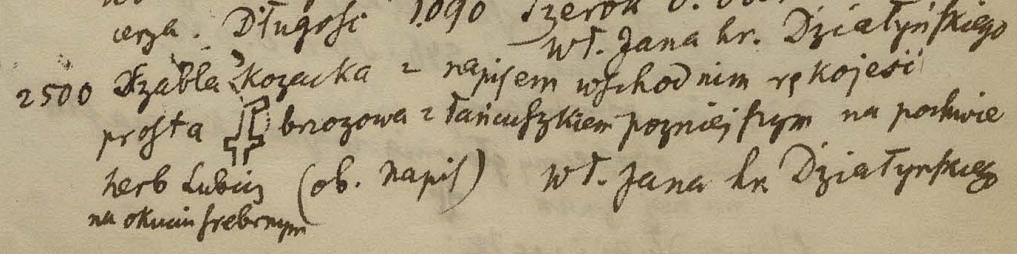 cerza. Długość 1.090 Szerok 0.
wł. Jana hr. Działyńskiego
2500 Szabla kozacka z napisem wschodnim rękojeść
prosta brozowa z łańcuszkiem pozniejszym na pochwie
herb Lubicz (ob. napis) wł. Jana hr. Działyńskiego
na okuciu srebrnym